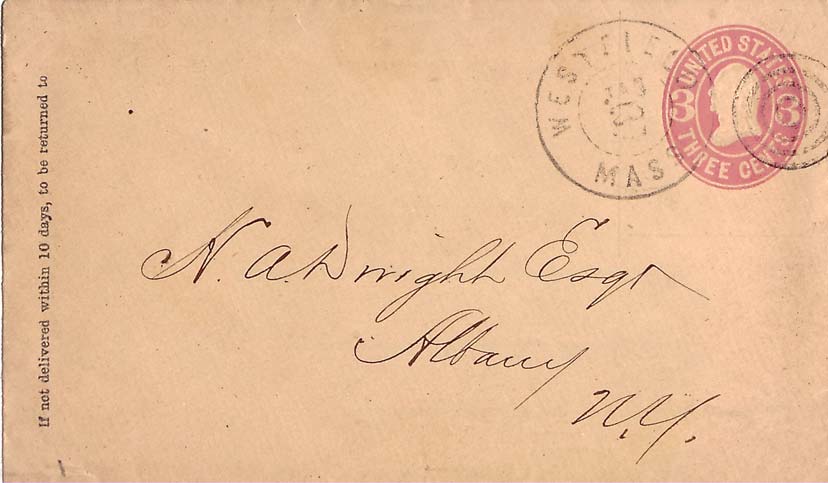 If not delivered within 10 days, to be returned to
WESTFIELD
MASS
UNITED STATES
3 3
THREE CENTS
N. A. Dwight Esqr
Albany
N.Y.